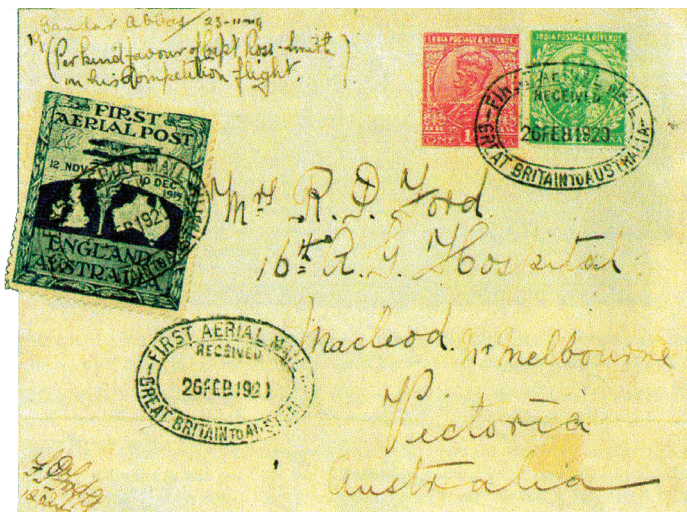 Bandar Abbas 23-11-19
(Per kind favour of Capt Ross-Smith
in his Competition flight.)
INDIA POSTAGE & REVENUE
INDIA POSTAGE & REVENUE
FIRST AERIAL MAIL
RECEIVED
26 FEB 1920
GREAT BRITAIN TO AUSTRALIA
FIRST
AERIAL POST
12 NOV
10 DEC
1919
ENGLAND
AUSTRALIA
Mrs R. D. Ford
16th A. G. Hospital
Macleod. Nr Melbourne
Victoria
Australia
FIRST AERIAL MAIL
RECEIVED
26 FEB 1920
GREAT BRITAIN TO AUSTRALIA